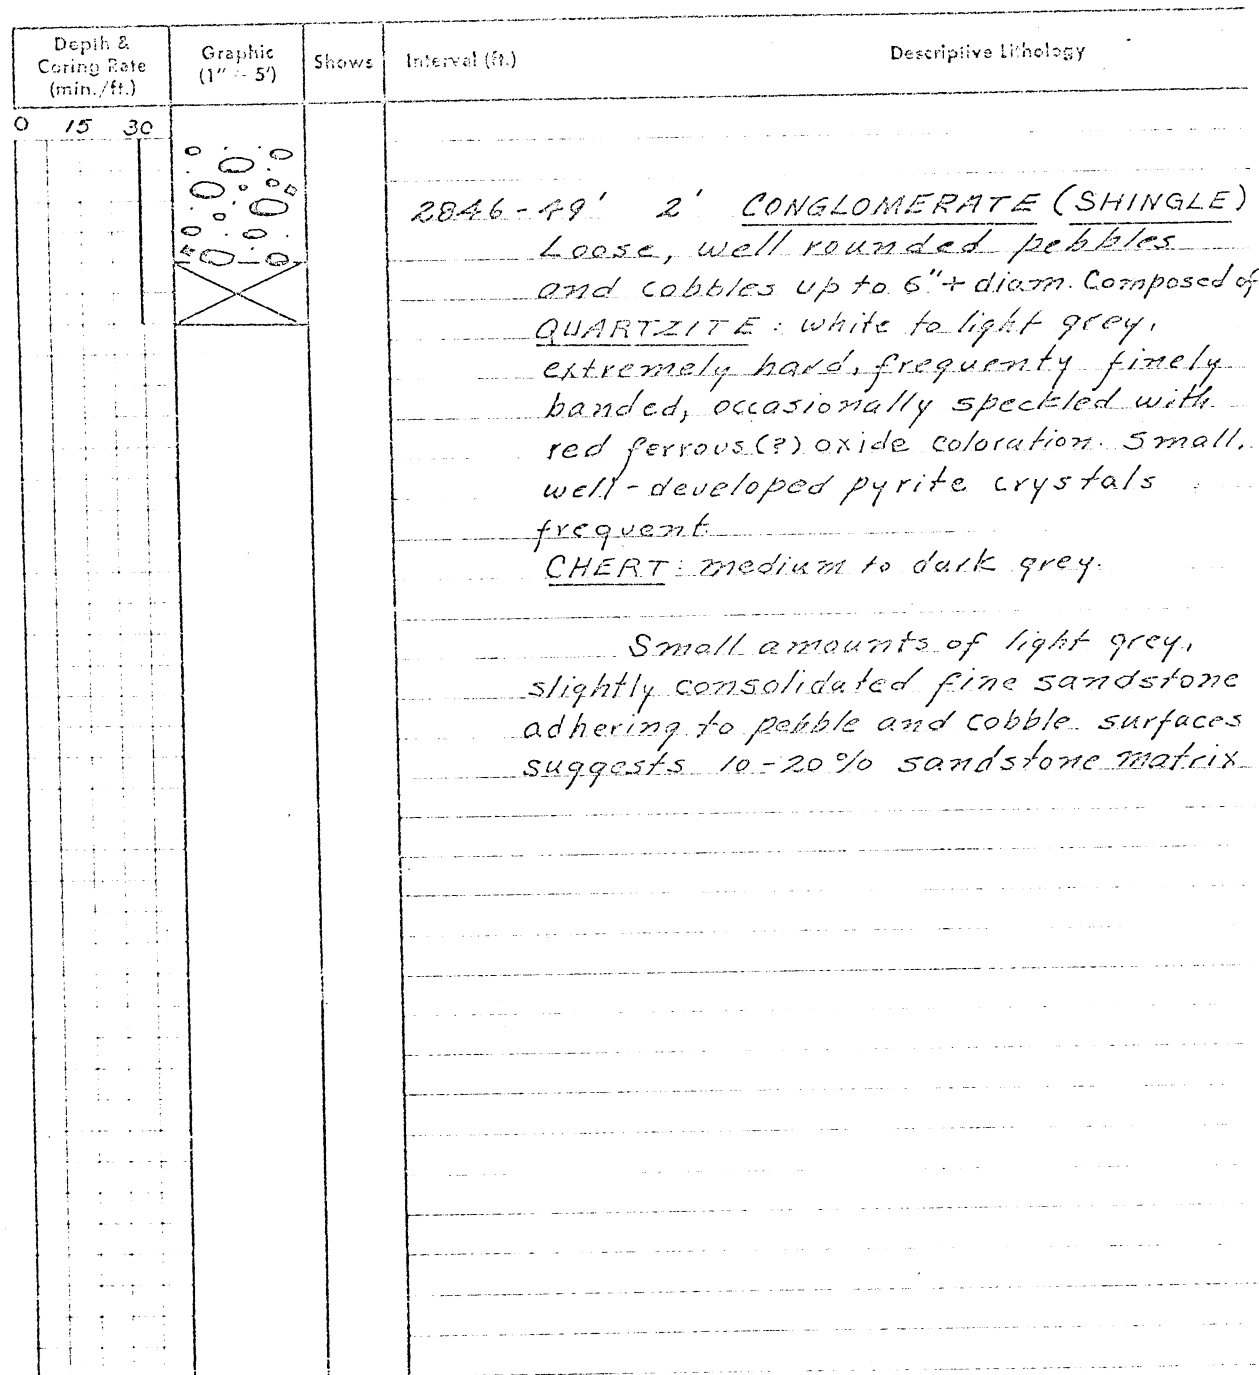 Depth &
Coring Rate
(min./ft.)
Graphic
(1" = 5')
Shows
Interval (ft.)
Descriptive Lithology
0 15 30
2846-49' 2' CONGLOMERATE (SHINGLE)
Loose, well rounded pebbles
and cobbles up to 6"+ diam. Composed of
QUARTZITE: white to light grey,
extremely hard, frequenty finely
banded, occasionally speckled with
red ferrous(?) oxide coloration. Small,
well-developed pyrite crystals
frequent
CHERT: medium to dark grey.
Small amounts of light grey,
slightly consolidated fine sandstone
adhering to pebble and cobble surfaces
suggests 10-20% sandstone matrix